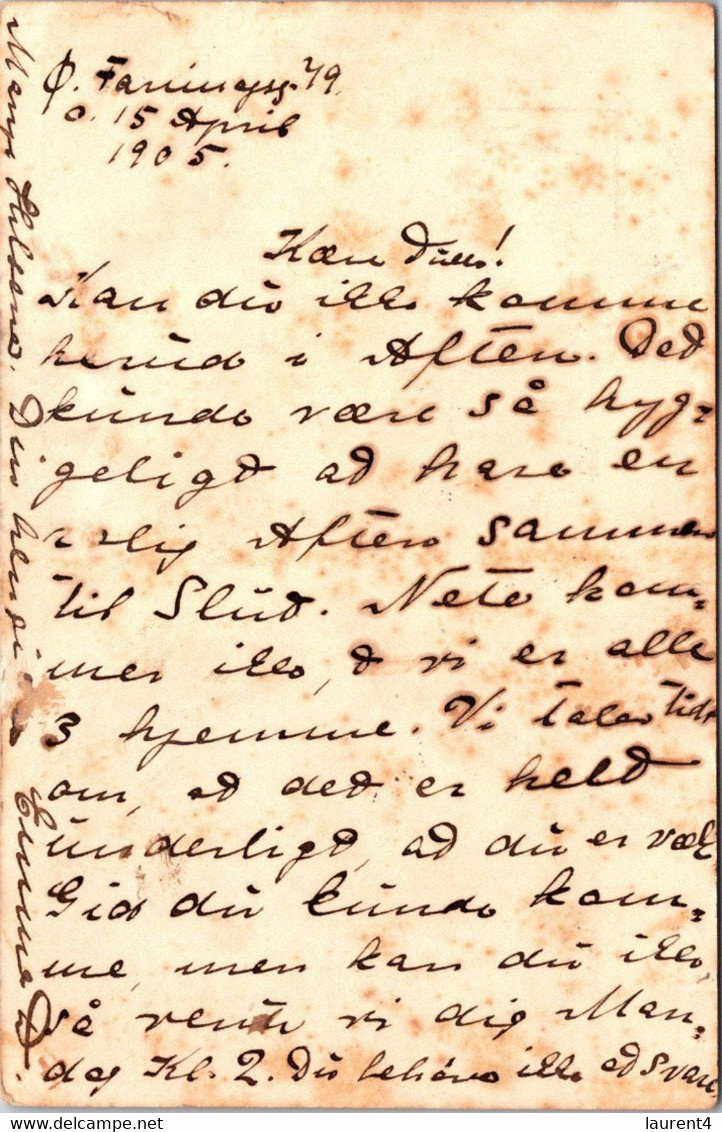 Ø. Farimagsg. 49.
d. 15 April
1905.
Kære
Kan du ikke komme
herud i Aften. Det
kunde være så hyg-
geligt at have en
rolig Aften sammen
til Slut. Nete kom-
mer ikke, & vi er alle
3 hjemme. Vi taler tidt
om, at det er helt
underligt, at du er væk
Gid du kunde kom-
me, men kan du ikke,
så vente vi dig Man-
dag Kl. 2. Du behøve ikke at svare.
Mange Hilsener. Din hengivne Emma D.
laurent4